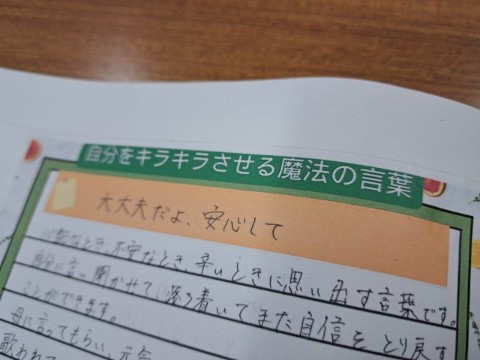 自分をキラキラさせる魔法の言葉
大丈夫だよ、安心して
心配なとき、不安なとき、辛いときに思い出す言葉です。
自分に言い聞かせて、落ち着いてまた自信をとり戻す
ことができます。
母に言ってもらい、元気